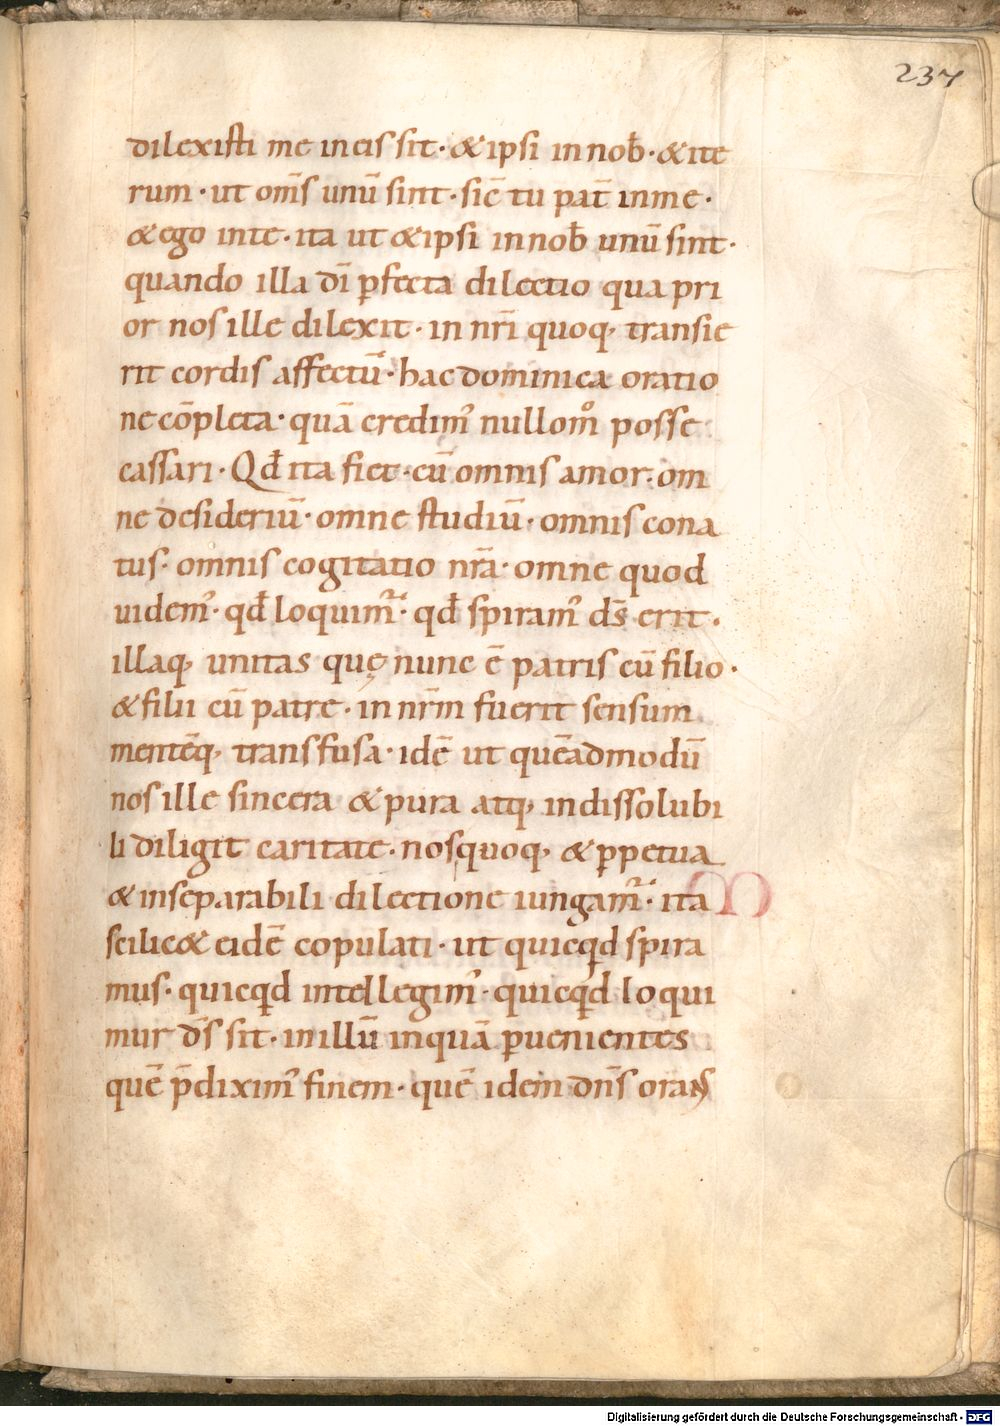 237
dilexisti me in eis sit· & ipsi in nob̄· & ite
rum· ut om̄s unū sint· sic̄ tu pat̄ in me·
& ego in te· ita ut & ipsi in nob̄ unū sint·
quando illa dī ꝑfecta dilectio qua pri
or nos ille dilexit· in nr̄i quoq; transie
rit cordis affectū· hac dominica oratio
ne cōpleta· quā credim᾽ nullom̊ posse
cassari· Qd̄ ita fiet· cū omnis amor· om
ne desideriū· omne studiū· omnis cona
tus· omnis cogitatio nr̄a· omne quod
uidem᾽· qd̄ loquim᷑· qd̄ spiram᾽ ds̄ erit·
illaq; unitas quę nunc ē patris cū filio·
& filii cū patre· in nr̄m fuerit sensum
mentēq; transfusa· idē ut quēadmodū
nos ille sincera & pura atq; indissolubi
li diligit caritate· nos quoq; & ꝑpetua
& inseparabili dilectione iungam᷑· ita
scilic& eidē copulati· ut quicqd spira
mus· quicqd intellegim᾽· quicqd loqui
mur ds̄ sit· in illū inquā ꝑuenientes
quē p̄dixim᾽ finem· quē idem dn̄s orans
Digitalisierung gefördert durch die Deutsche Forschungsgemeinschaft - DFG